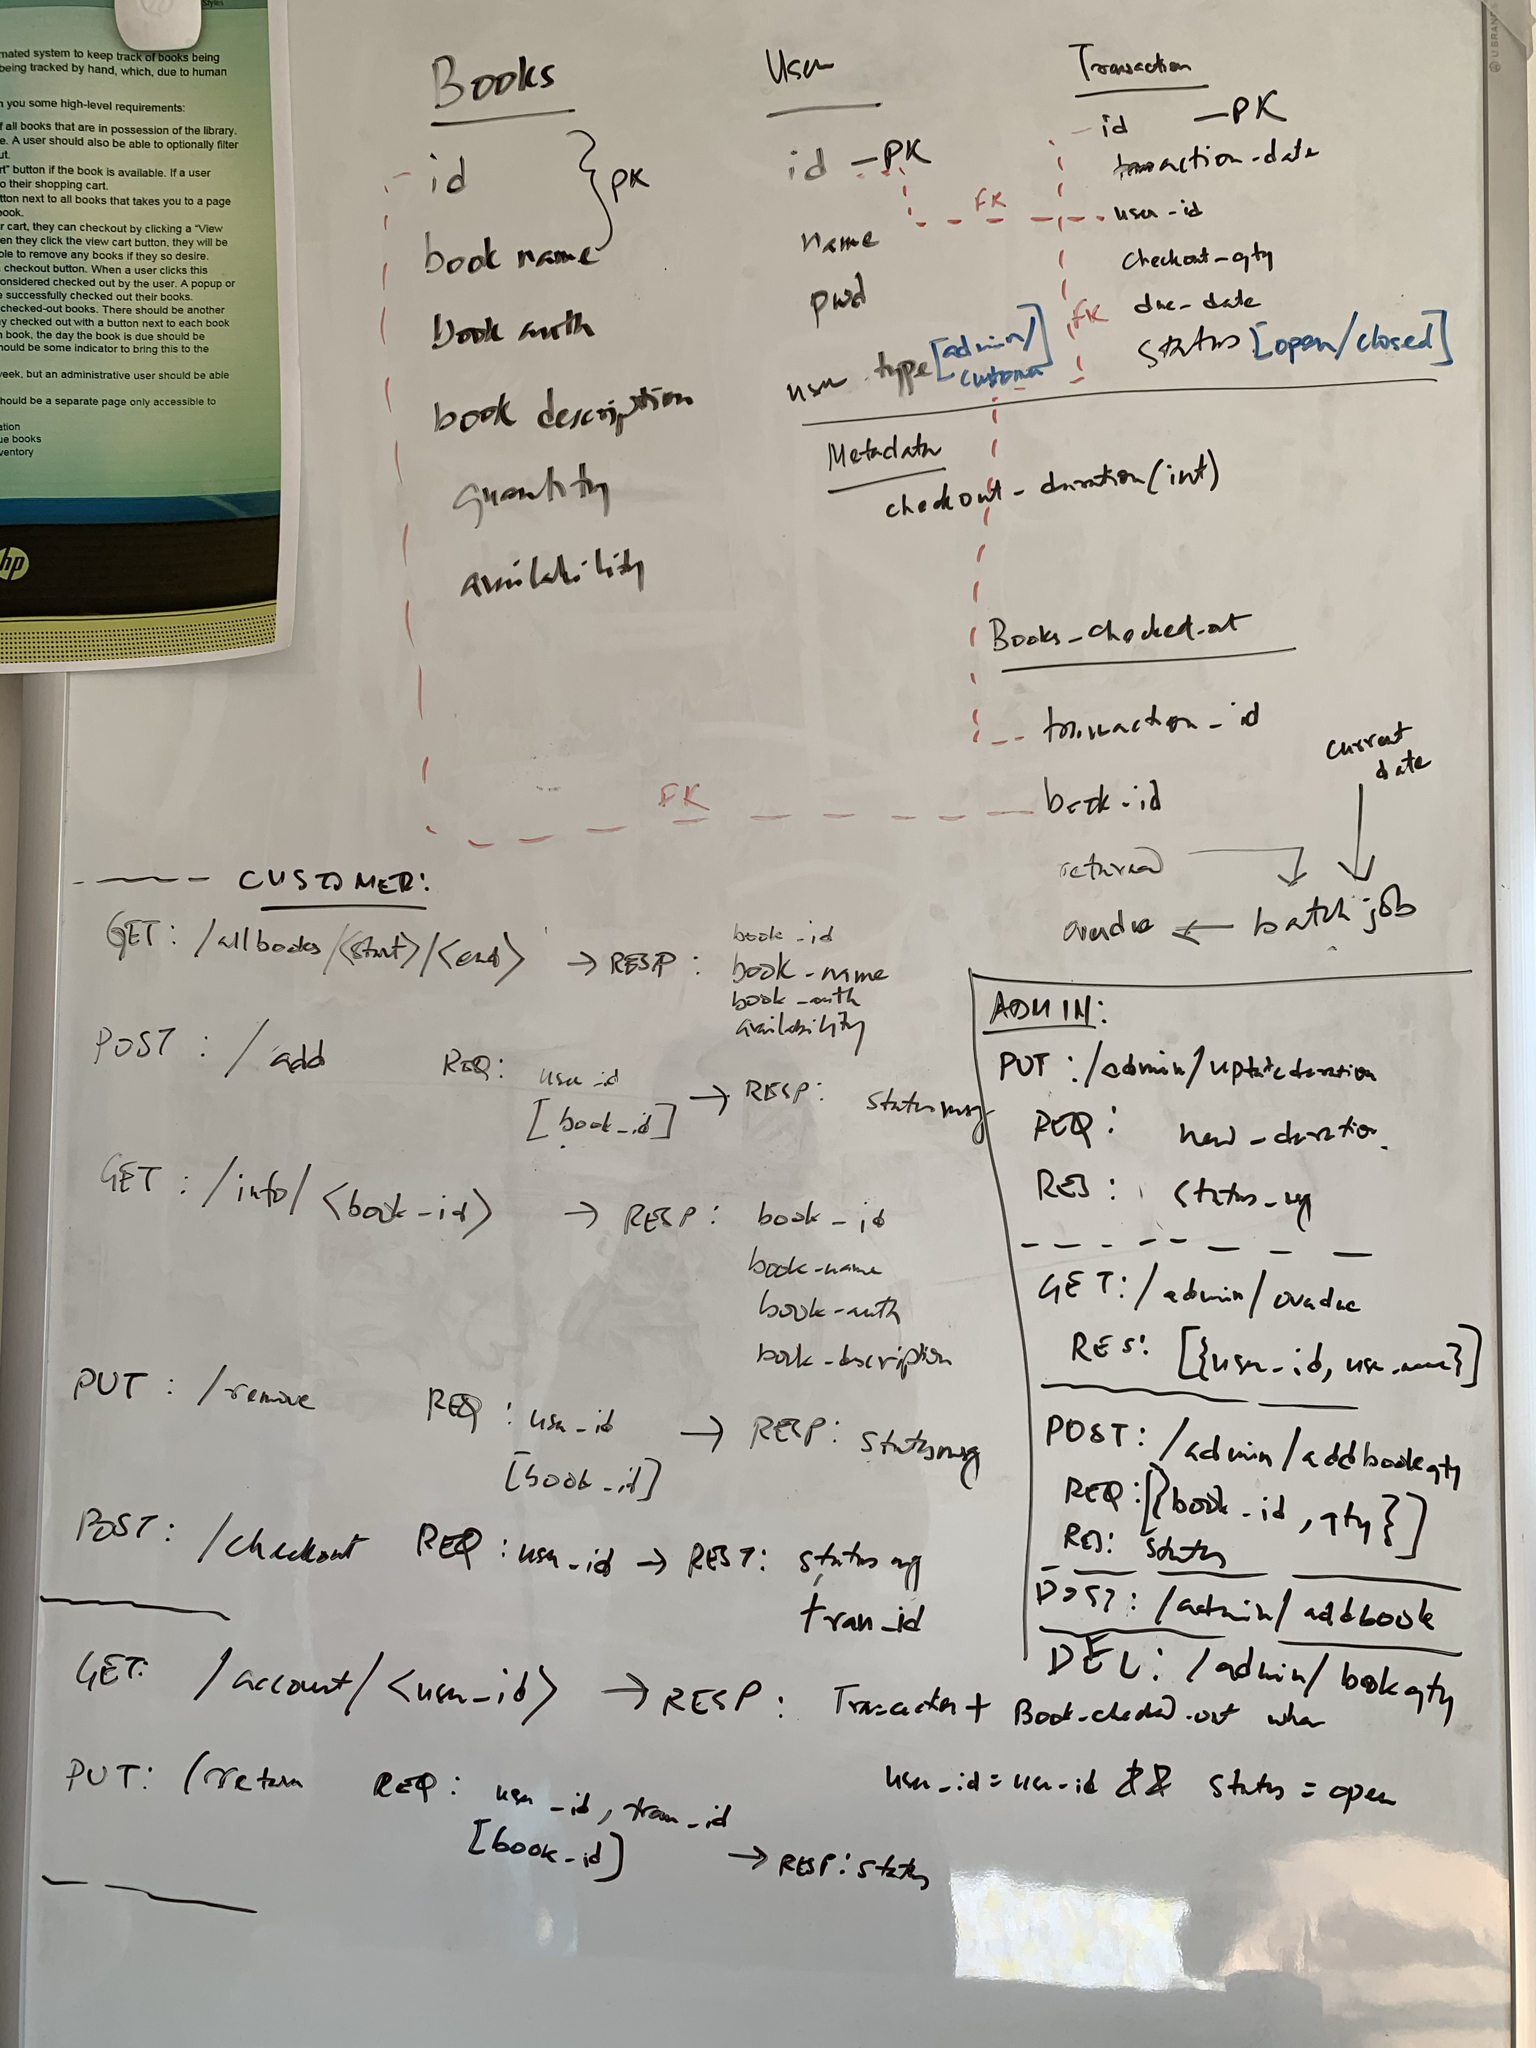 styles
mated system to keep track of books being
being tracked by hand, which, due to human
n you some high-level requirements:
f all books that are in possession of the library.
e. A user should also be able to optionally filter
ut.
rt" button if the book is available. If a user
o their shopping cart.
tton next to all books that takes you to a page
book.
r cart, they can checkout by clicking a "View
en they click the view cart button, they will be
ble to remove any books if they so desire.
checkout button. When a user clicks this
onsidered checked out by the user. A popup or
e successfully checked out their books.
checked-out books. There should be another
y checked out with a button next to each book
n book, the day the book is due should be
hould be some indicator to bring this to the
week, but an administrative user should be able
hould be a separate page only accessible to
ation
ue books
ventory
hp
U BRANDS
Books
id
PK
book name
book auth
book description
quantity
availability
User
id - PK
name
pwd
user type [admin/
customer]
Transaction
id - PK
transaction-date
FK
user-id
checkout-qty
FK
due-date
status [open/closed]
Metadata
checkout-duration (int)
Books_checked_out
transaction_id
FK
book-id
returned
overdue ← batch job
current
date
CUSTOMER:
GET: /allbooks/<start>/<end> → RESP: book-id
book-name
book-auth
availability
POST: /add REQ: user_id
[book_id] → RESP: status msg
GET: /info/<book-id> → RESP: book-id
book-name
book-auth
book-description
PUT: /remove REQ: user-id
[book-id] → RESP: status msg
POST: /checkout REQ: user-id → RESP: status msg
tran_id
GET: /account/<user-id> → RESP: Transaction + Book-checked-out when
user_id = user-id && status = open
PUT: /return REQ: user_id, tran_id
[book_id] → RESP: status
ADMIN:
PUT: /admin/updateduration
REQ: new_duration
RES: status_msg
GET: /admin/overdue
RES: [{user_id, user_name}]
POST: /admin/addbookqty
REQ: [{book_id, qty}]
RES: status
POST: /admin/addbook
DEL: /admin/bookqty